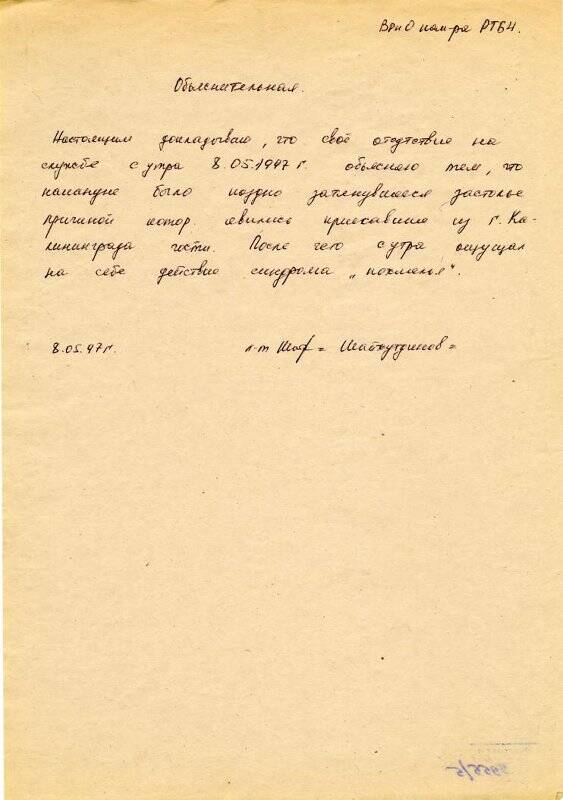 ВриО ком-ра РТБЧ.
Объяснительная.
Настоящим докладываю, что своё отсутствие на
службе с утра 8.05.1997г. объясняю тем, что
накануне было поздно затянувшееся застолье
причиной котор. явились приехавшие из г. Ка-
лининграда гости. После чего с утра ощущал
на себе действие синдрома „похмелья".
8.05.97г. л-т